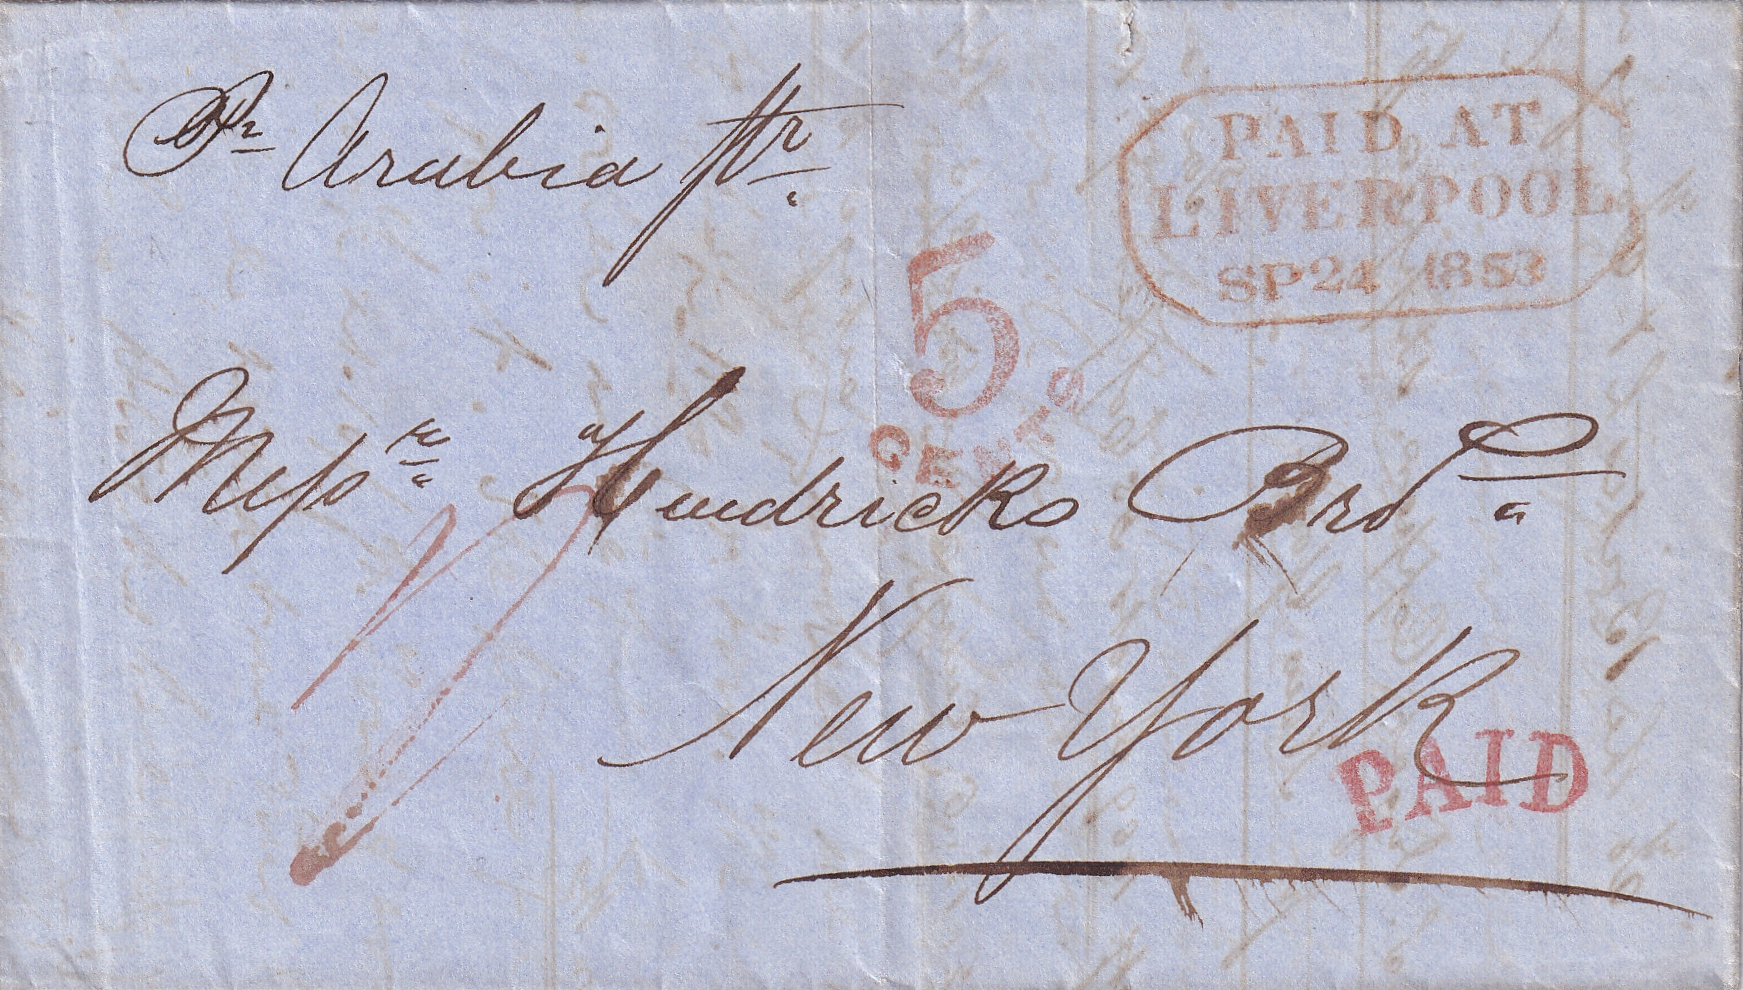 Pr Arabia Str
PAID AT
LIVERPOOL
SP 24 1853
5
CENTS
Messrs Hendricks Bros
New York
PAID